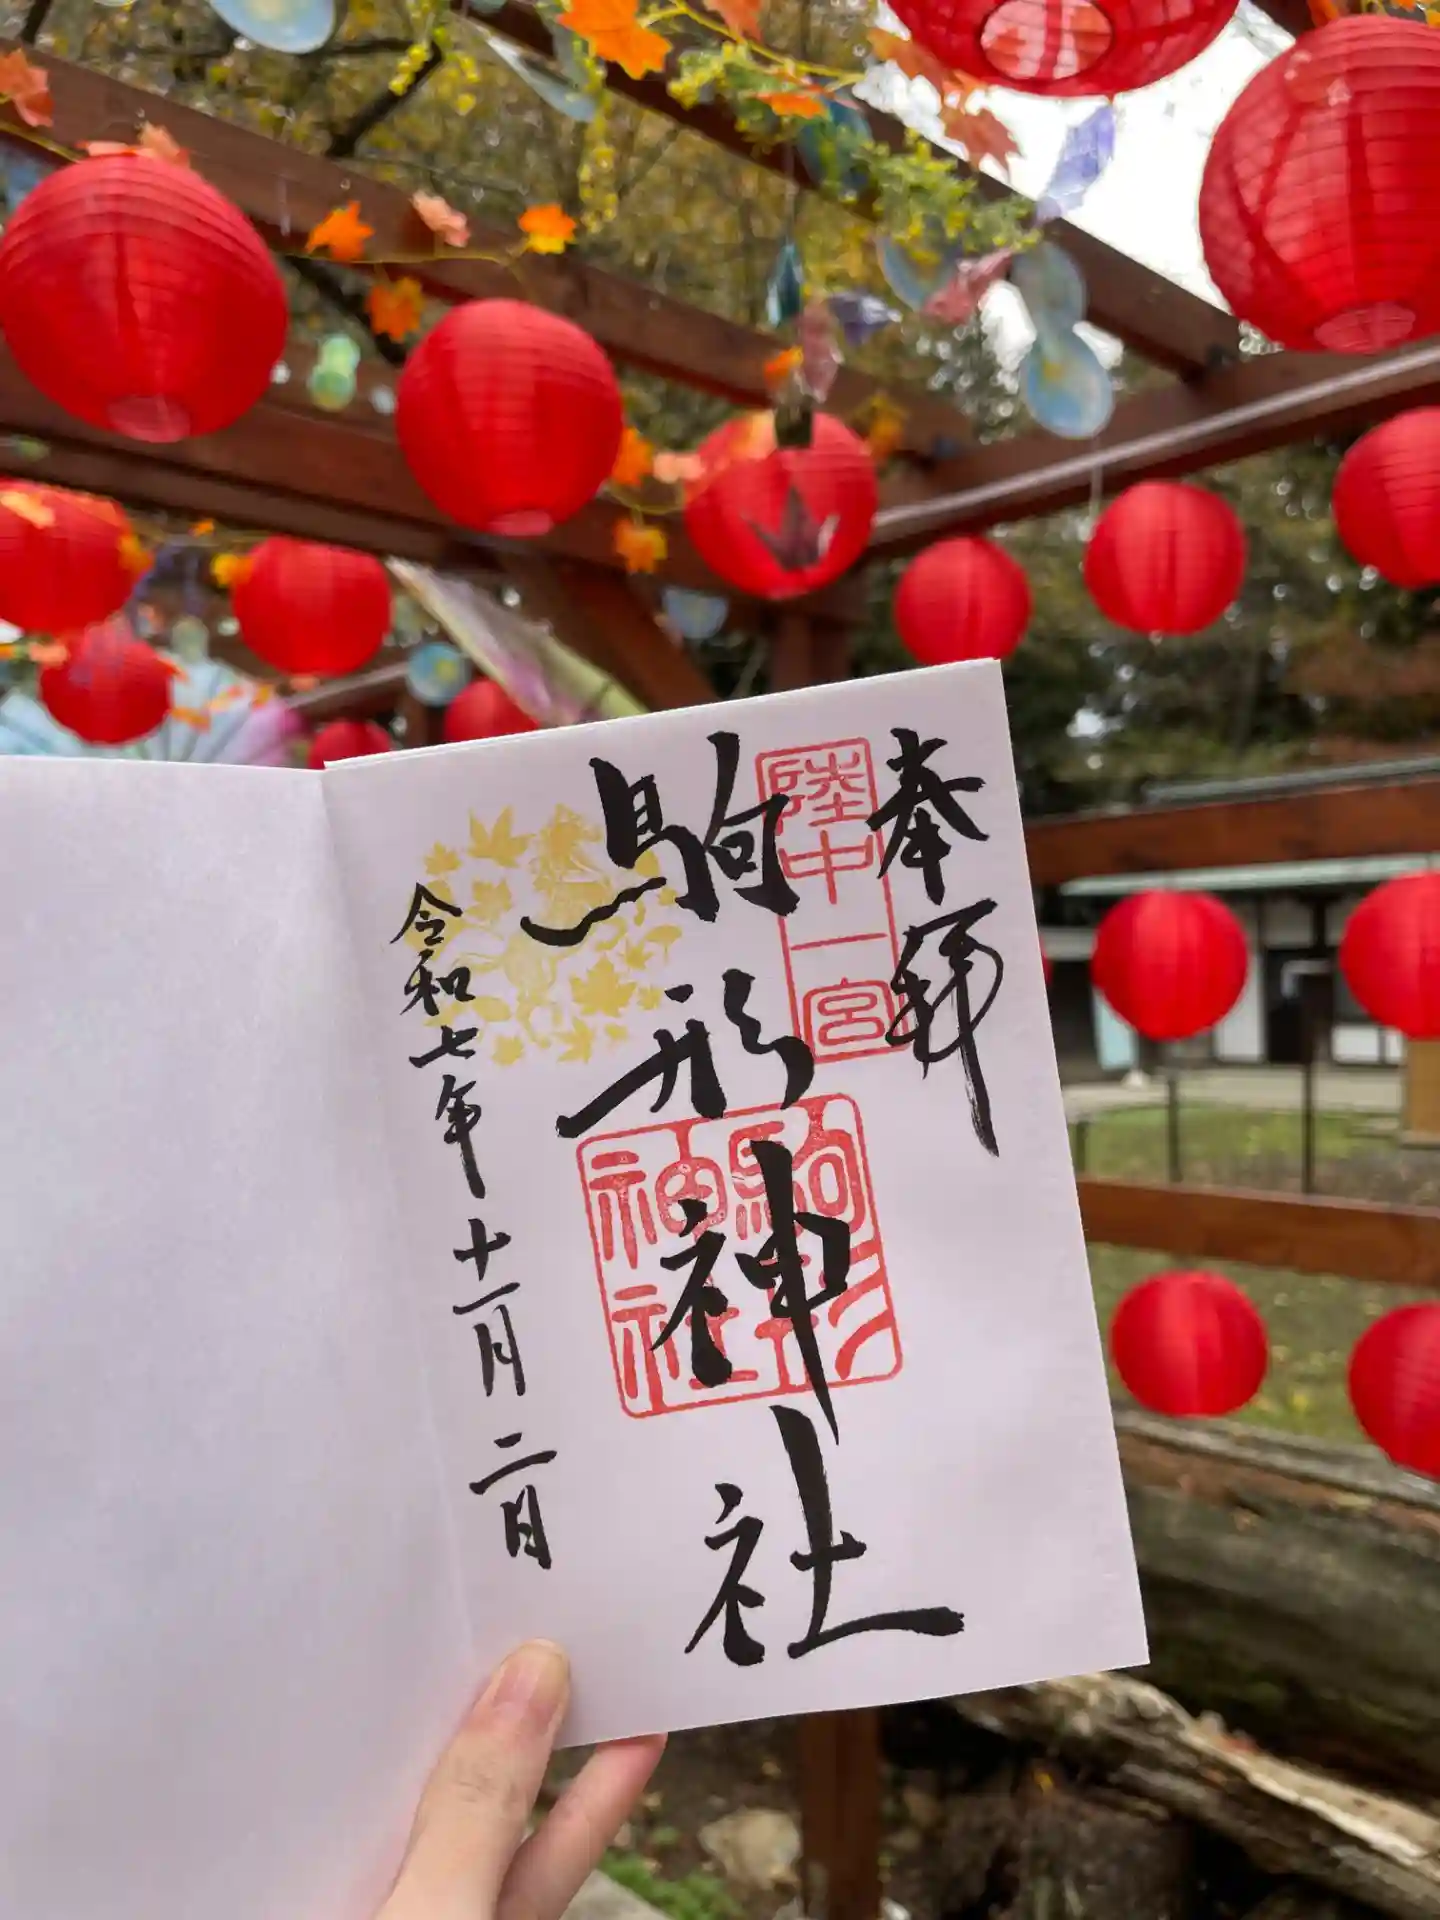 奉拝
陸中一宮
駒形神社
駒形
神社
令和七年十一月二日